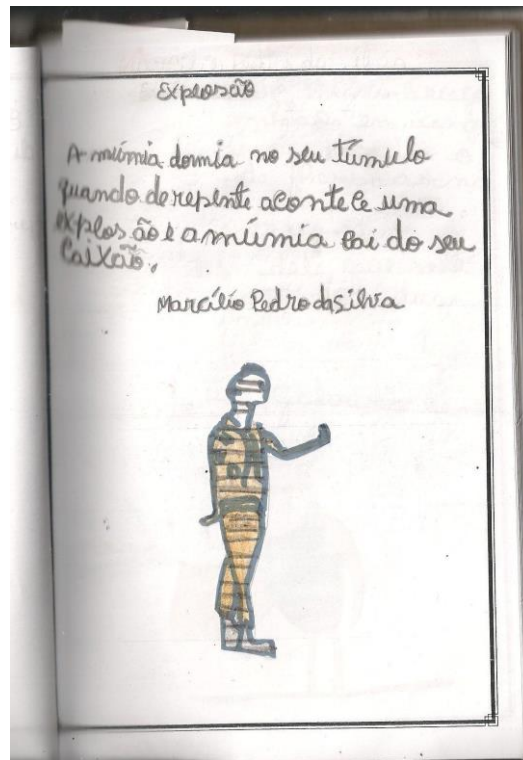 Explosão
A múmia dormia no seu túmulo
quando derepente acontece uma
explos ão e a múmia cai do seu
caixão.
Marcílio Pedro da silva